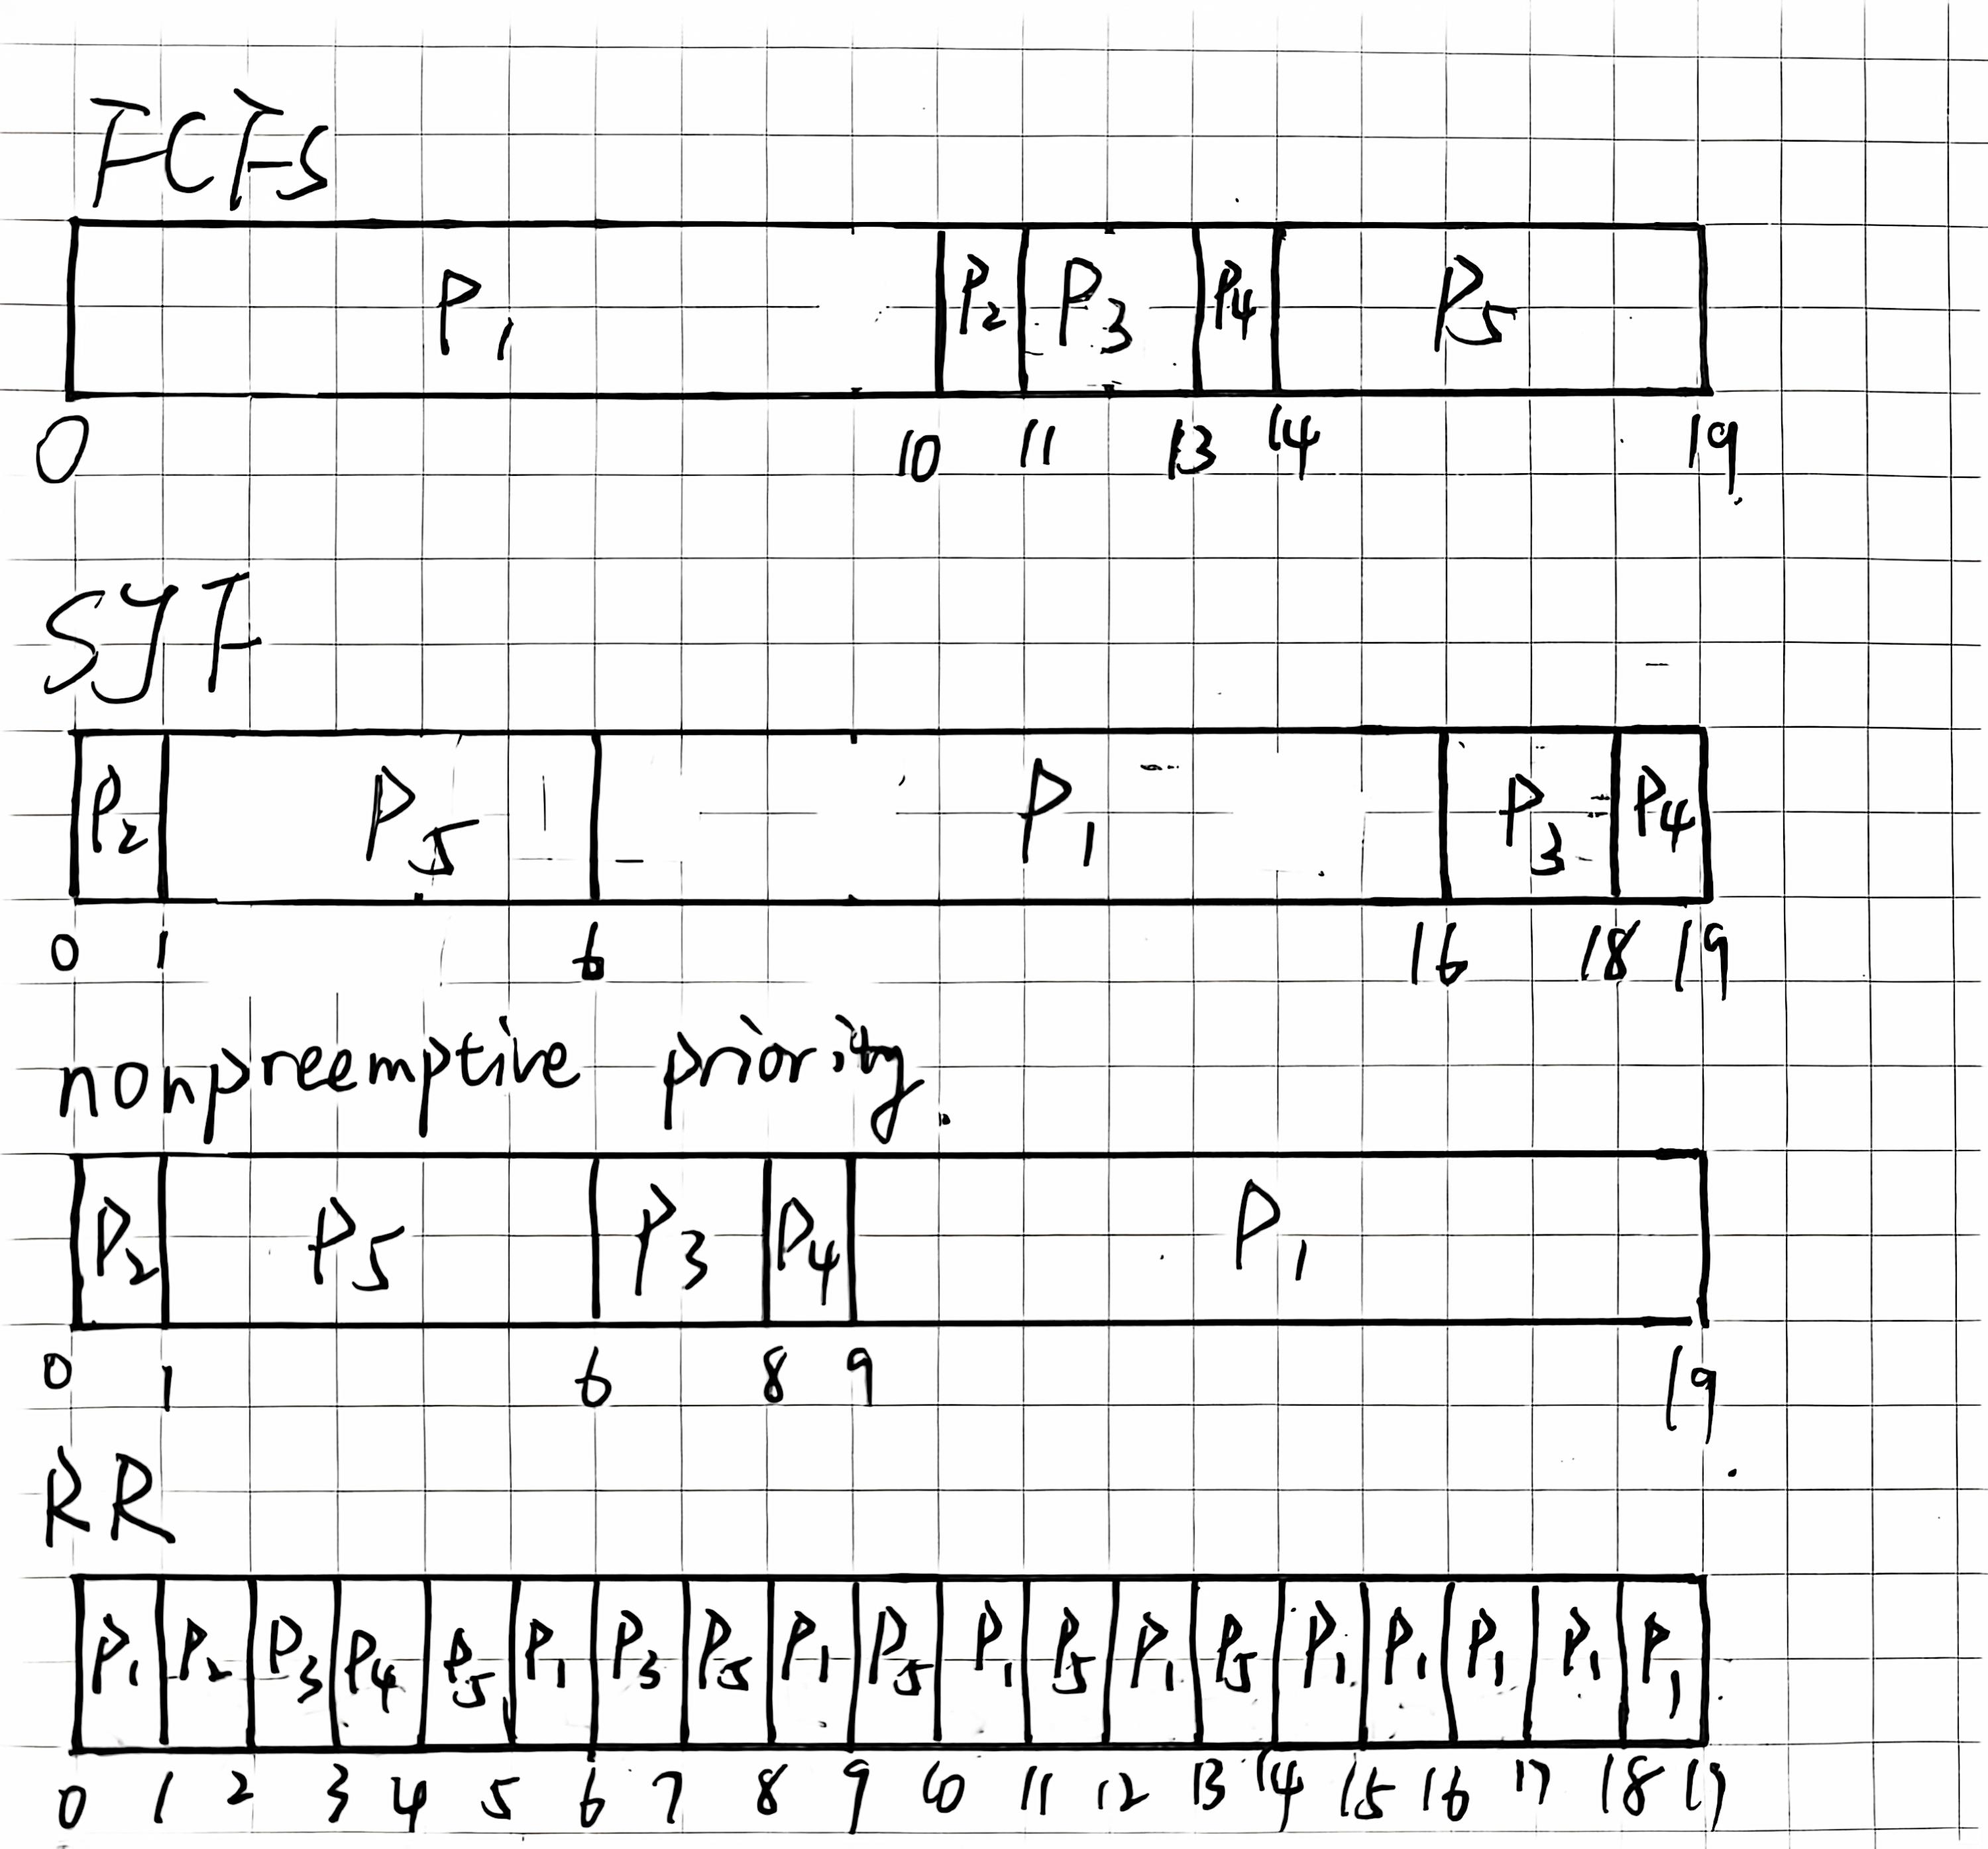 FCFS
P1 P2 P3 P4 P5
0 10 11 13 14 19
SJF
P2 P5 P1 P3 P4
0 1 6 16 18 19
nonpreemptive priority.
P2 P5 P3 P4 P1
0 1 6 8 9 19
RR
P1 P2 P3 P4 P5 P1 P3 P5 P1 P5 P1 P5 P1 P5 P1 P1 P1 P1 P1
0 1 2 3 4 5 6 7 8 9 10 11 12 13 14 15 16 17 18 19